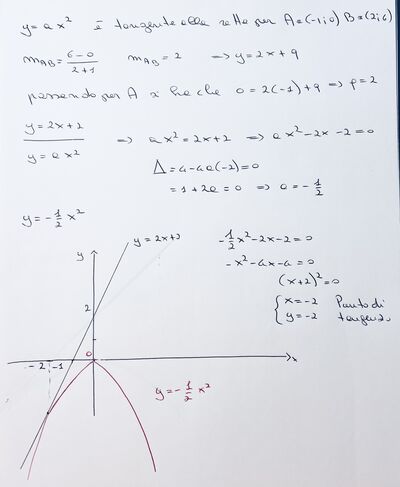 y = ax² è tangente alla retta per A≡(-1;0) B≡(2;6)
m_AB = (6-0)/(2+1) m_AB = 2 => y = 2x+q
passando per A si ha che 0 = 2(-1)+q => q = 2
y = 2x+2
y = ax²
=> ax² = 2x+2 => ax²-2x-2=0
Δ = 4-4a(-2)=0
= 1+2a = 0 => a = -1/2
y = -1/2 x²
-1/2 x²-2x-2=0
-x²-4x-4=0
(x+2)²=0
{ x=-2 Punto di
y=-2 tangenza
y = 2x+2
y
2
0
-2 -1
x
y = -1/2 x²